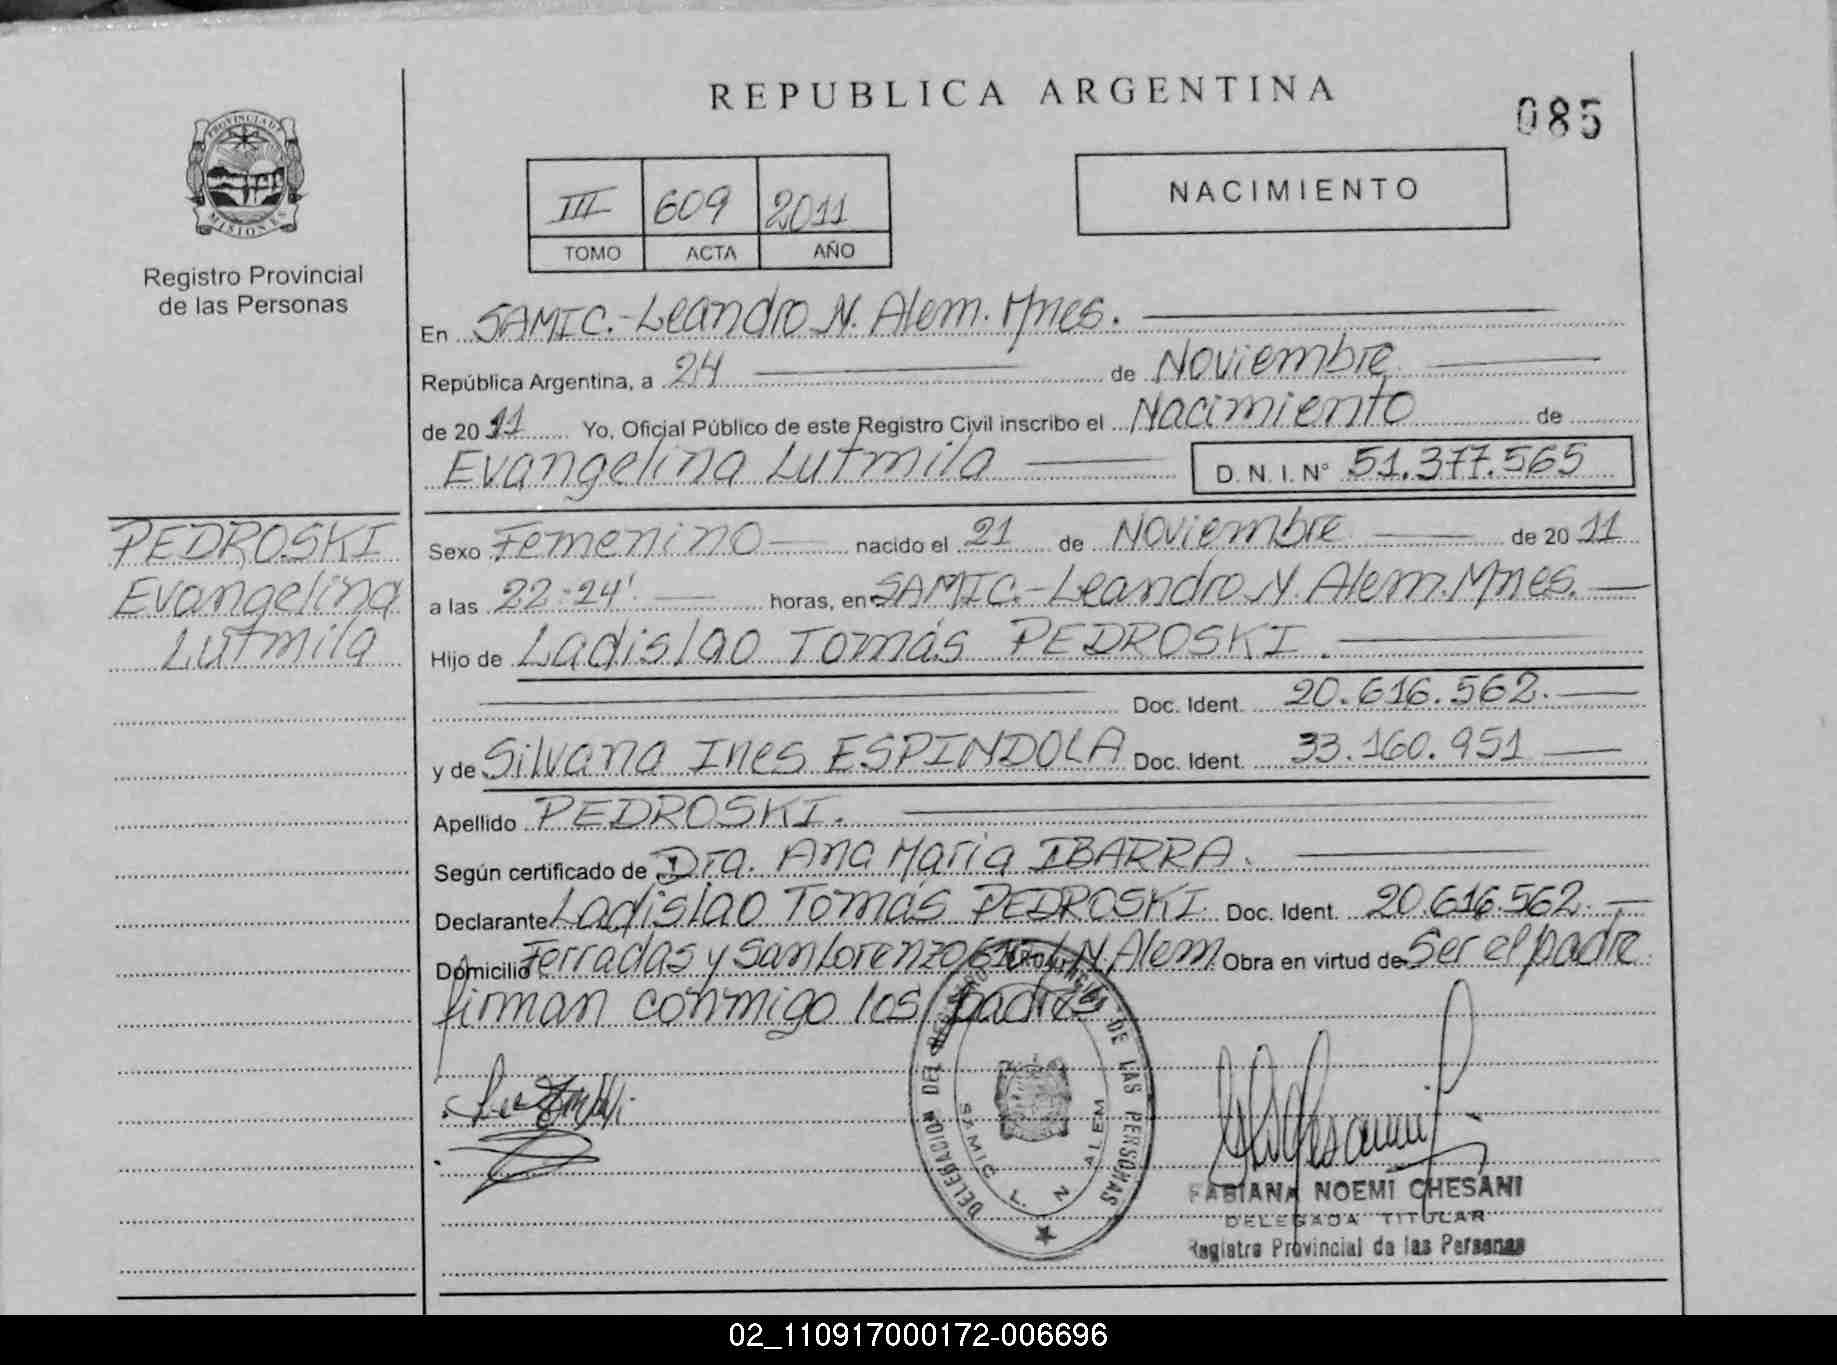 REPUBLICA ARGENTINA
085
PROVINCIA DE
MISIONES
Registro Provincial
de las Personas
III 609 2011
TOMO ACTA AÑO
NACIMIENTO
En SAMIC.-Leandro N. Alem. Mnes.
República Argentina, a 24 de Noviembre
de 2011 Yo, Oficial Público de este Registro Civil inscribo el Nacimiento de
Evangelina Lutmila D. N. I. N° 51.377.565
PEDROSKI
Evangelina
Lutmila
Sexo Femenino nacido el 21 de Noviembre de 2011
a las 22:24' horas, en SAMIC.-Leandro N. Alem. Mnes.
Hijo de Ladislao Tomás PEDROSKI.
Doc. Ident. 20.616.562.
y de Silvana Ines ESPINDOLA Doc. Ident. 33.160.951
Apellido PEDROSKI.
Según certificado de Dra. Ana Maria IBARRA.
Declarante Ladislao Tomás PEDROSKI. Doc. Ident. 20.616.562.
Domicilio Terradas y San Lorenzo L. N. Alem. Obra en virtud de Ser el padre
firman conmigo los padres
DELEGACION DEL REGISTRO PROVINCIAL DE LAS PERSONAS
SAMIC L. N. ALEM
FABIANA NOEMI CHESANI
DELEGADA TITULAR
Registro Provincial de las Personas
02_110917000172-006696